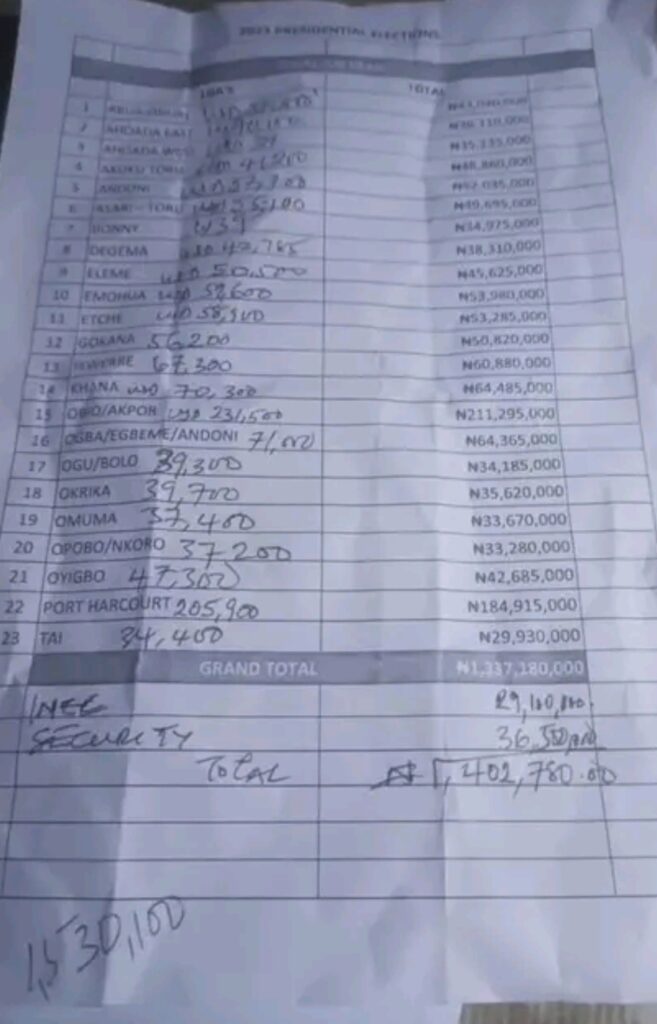 2023 PRESIDENTIAL ELECTIONS
LGA'S TOTAL
1
2 AHOADA EAST ₦39,110,000
3 AHOADA WEST ₦35,335,000
4 AKUKU TORU 41,200
5 ANDONI
6 ASARI - TORU ₦49,695,000
7 BONNY ₦34,975,000
8 DEGEMA USD 42,785 ₦38,310,000
9 ELEME USD 50,500 ₦45,625,000
10 EMOHUA USD 59,600 ₦53,980,000
11 ETCHE USD 58,900 ₦53,285,000
12 GOKANA 56,200 ₦50,820,000
13 IKWERRE 67,300 ₦60,880,000
14 KHANA USD 70,300 ₦64,485,000
15 OBIO/AKPOR USD 231,500 ₦211,295,000
16 OGBA/EGBEME/ANDONI 71,000 ₦64,365,000
17 OGU/BOLO 39,300 ₦34,185,000
18 OKRIKA 39,700 ₦35,620,000
19 OMUMA 37,400 ₦33,670,000
20 OPOBO/NKORO 37,200 ₦33,280,000
21 OYIGBO 47,300 ₦42,685,000
22 PORT HARCOURT 205,900 ₦184,915,000
23 TAI 34,400 ₦29,930,000
GRAND TOTAL ₦1,337,180,000
INEC 29,100,000
SECURITY 36,500,000
TOTAL ₦1,402,780.00
1,530,100